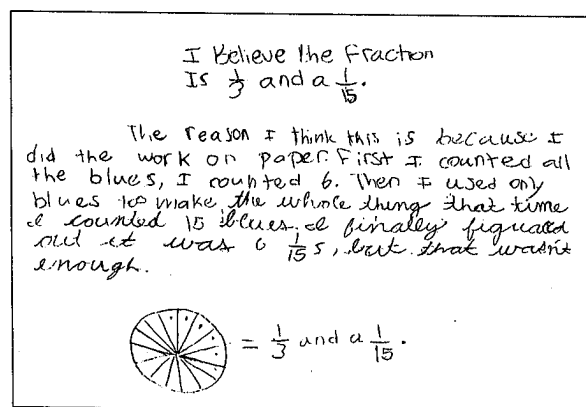 I Believe the fraction
Is 1/3 and a 1/15.
The reason I think this is because I
did the work on paper. First I counted all
the blues, I counted 6. Then I used only
blues to make the whole thing that time
I counted 15 blues. I finally figuaed
out it was 6 1/15 s, but that wasn't
enough.
= 1/3 and a 1/15.